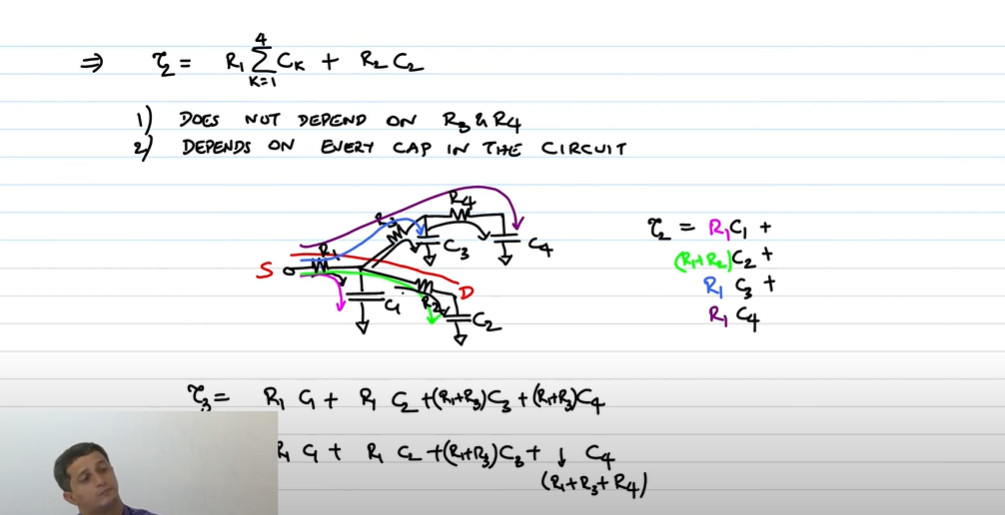 ⇒ τ₂ = R₁ 4ΣK=1 Cκ + R₂ C₂
1) DOES NOT DEPEND ON R₃ & R₄
2) DEPENDS ON EVERY CAP IN THE CIRCUIT
R₄
R₃
C₃ C₄
R₁
S
D
C₁ R₂
C₂
τ₂ = R₁C₁ +
(R₁+R₂)C₂ +
R₁ C₃ +
R₁ C₄
τ₃ = R₁ C₁ + R₁ C₂ + (R₁+R₃)C₃ + (R₁+R₃)C₄
R₁ C₁ + R₁ C₂ + (R₁+R₃)C₃ + ↓ C₄
(R₁+R₃+R₄)